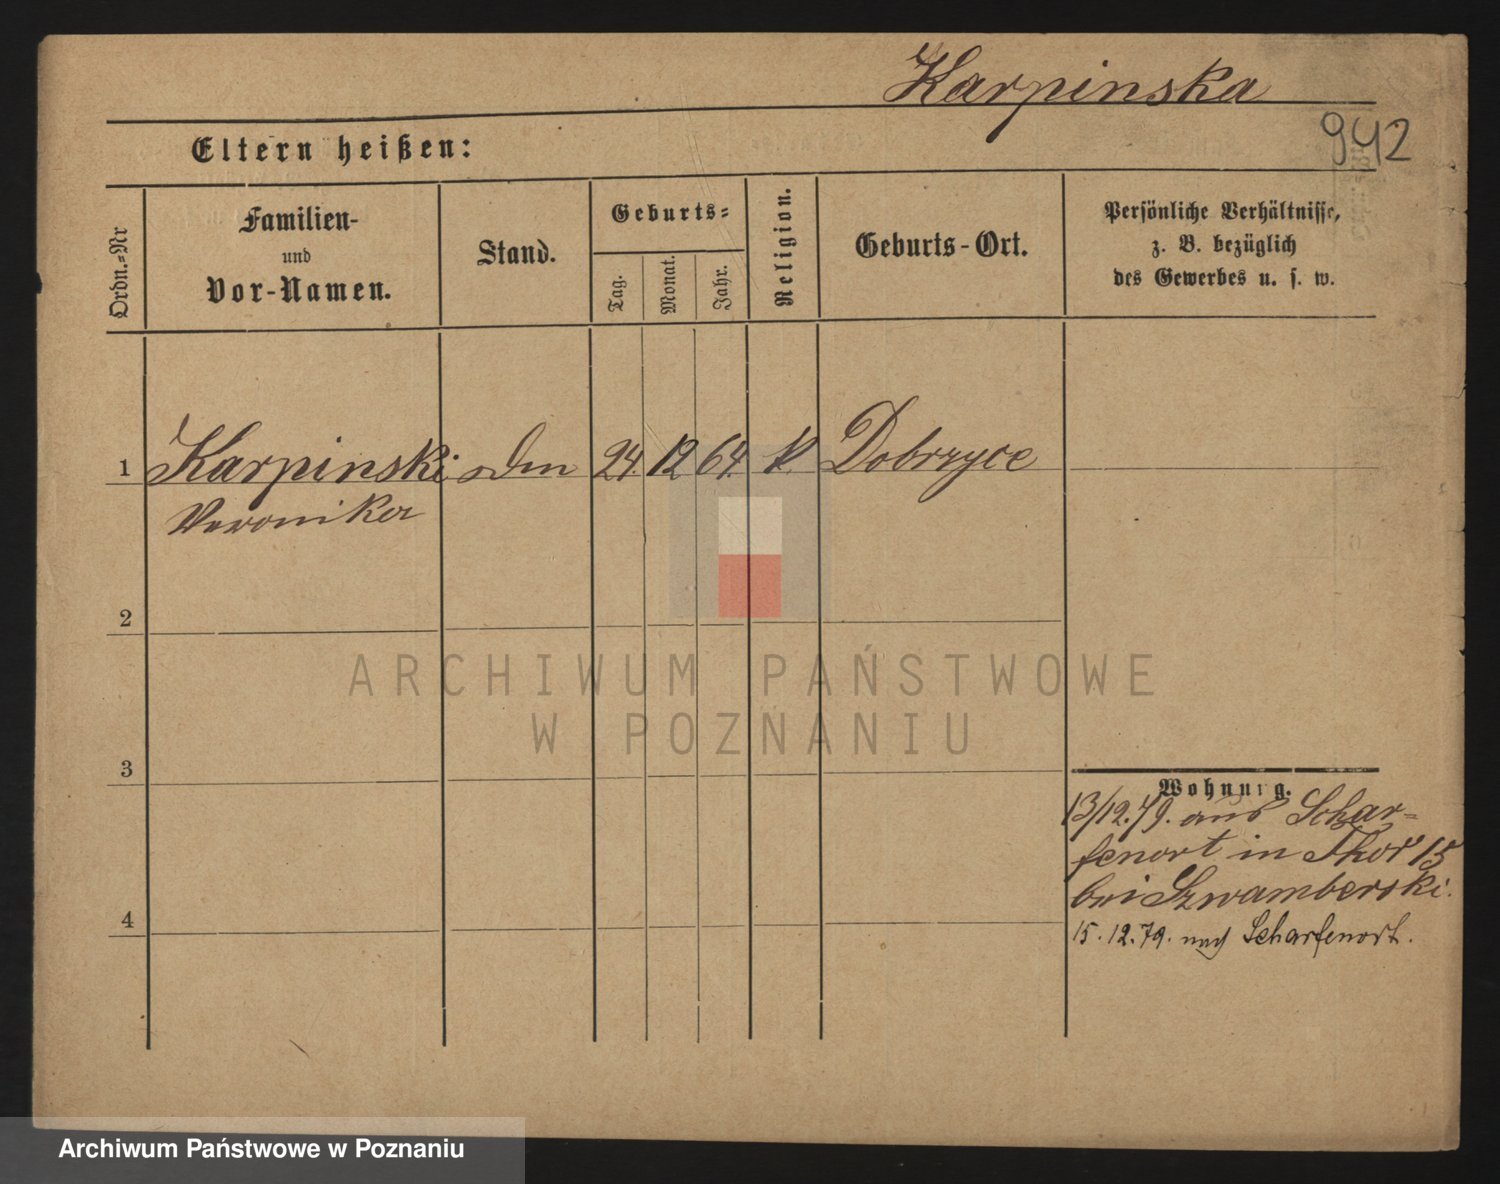 Karpinska
942
Eltern heißen:
Ordn.=Nr
Familien-
und
Vor-Namen.
Stand.
Geburts=
Tag.
Monat.
Jahr.
Religion.
Geburts-Ort.
Persönliche Verhältnisse,
z. B. bezüglich
des Gewerbes u. s. w.
1 Karpinski 24. 12 64. k. Dobrzyce
Veronika
2
3
4
Wohnung.
13/12.79. aus Schar=
fenort in Thor 15
bei Szwamberski.
15.12.79. nach Scharfenort.
ARCHIWUM PAŃSTWOWE
W POZNANIU
Archiwum Państwowe w Poznaniu